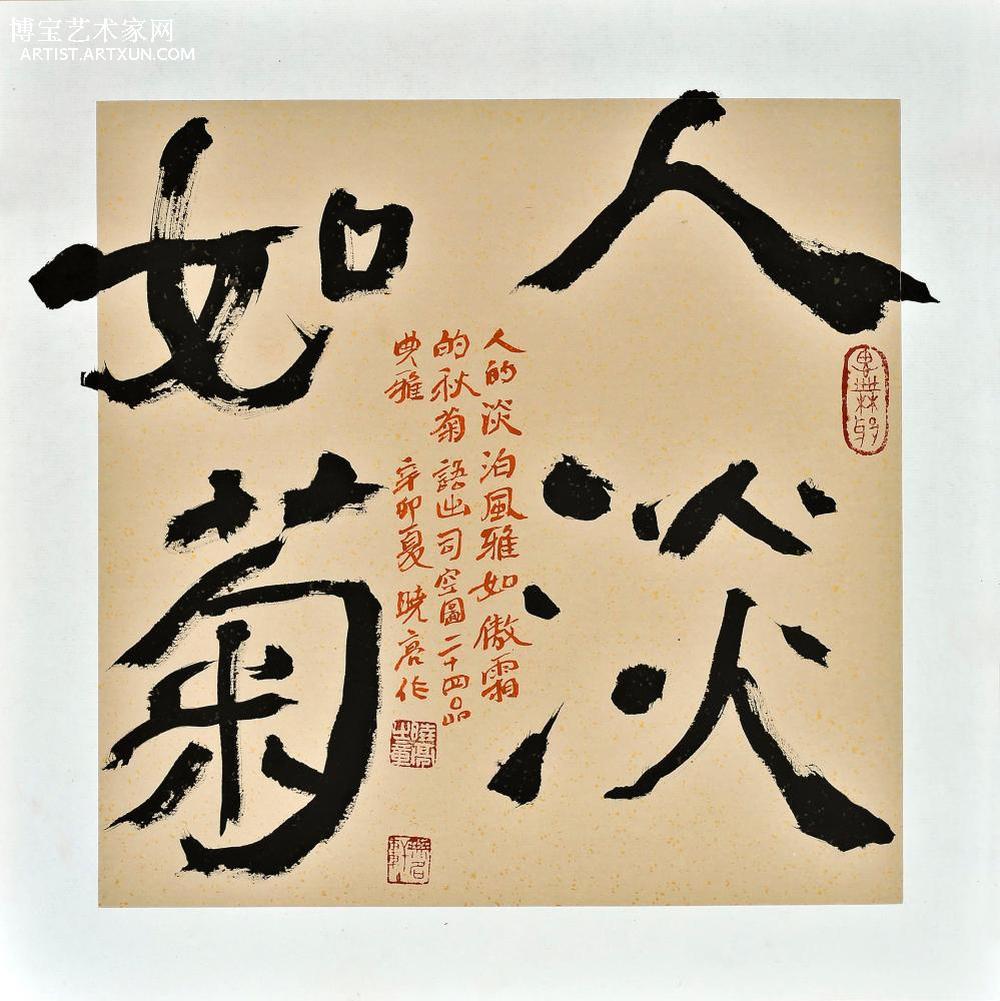 博宝艺术家网
ARTIST.ARTXUN.COM
人淡
如菊
人的淡泊風雅如傲霜
的秋菊語出司空圖二十四品
典雅 辛卯夏 曉亮作
曉亮之章